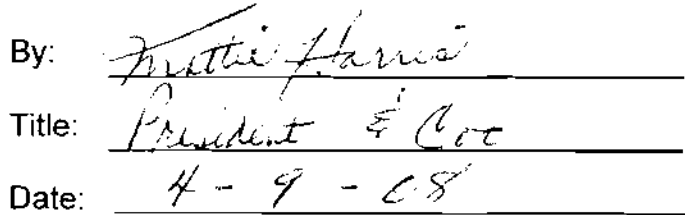 By: Mattie Harris
Title: President &
Date: 4-9-08